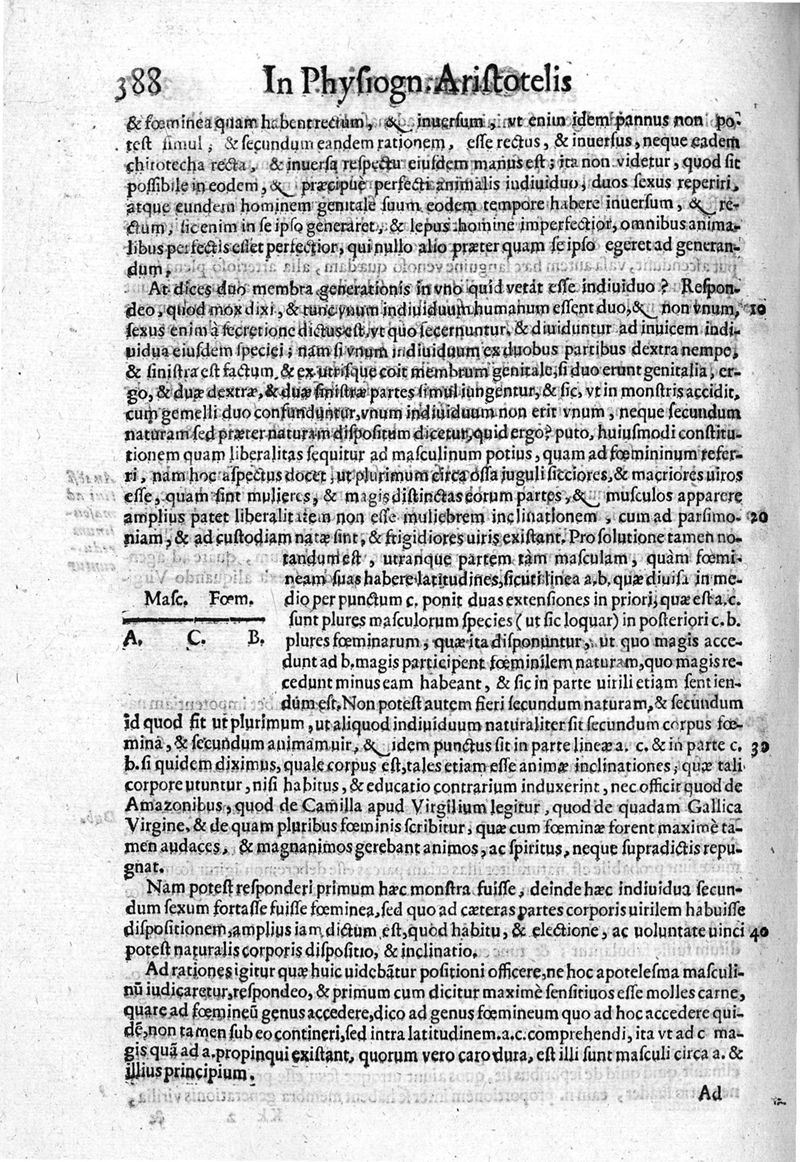 388 In Physiogn. Aristotelis
& fœminea quam habent rectum, & inversum, vt enim idem pannus non po-
test simul, & secundum eandem rationem, esse rectus, & inversus, neque eadem
chirotecha recta, & inversa respectu eiusdem manus est; ita non videtur, quod sit
possibile in eodem, & præcipue perfecti animalis indiuiduo, duos sexus reperiri,
atque eundem hominem genitale suum eodem tempore habere inversum, & re-
ctum, sic enim in se ipso generaret, & lepus homine imperfectior, omnibus anima-
libus perfectis esset perfectior, qui nullo alio præter quam se ipso egeret ad generan-
dum.
At dices duo membra generationis in vno quid vetat esse indiuiduo? Respon-
deo, quod mox dixi, & tunc vnum indiuiduum humanum essent duo, & non vnum, 10
sexus enim a secretione dictus est, vt quo secernuntur, & diuiduntur ad inuicem indi-
uidua eiusdem speciei; nam si vnum indiuiduum ex duobus partibus dextra nempe,
& sinistra est factum, & ex utrisque coit membrum genitale, si duo erunt genitalia, er-
go, & duæ dextræ, & duæ sinistræ partes simul iungentur, & sic, vt in monstris accidit,
cum gemelli duo confunduntur, vnum indiuiduum non erit vnum, neque secundum
naturam sed præter naturam dispositum dicetur, quid ergo? puto, huiusmodi constitu-
tionem quam liberalitas sequitur ad masculinum potius, quam ad fœmininum refer-
ri, nam hoc aspectus docet, ut plurimum circa ossa juguli sicciores, & macriores uiros
esse, quam sint mulieres, & magis distinctas eorum partes, & musculos apparere
amplius patet liberalitatem non esse muliebrem inclinationem, cum ad parsimo- 20
niam, & ad custodiam natæ sint, & frigidiores uiris existant. Pro solutione tamen no-
tandum est, utranque partem tam masculam, quàm fœmi-
neam suas habere latitudines, sicuti linea a. b. quæ diuisa in me-
Masc. Fœm. dio per punctum c. ponit duas extensiones in priori, quæ est a. c.
sunt plures masculorum species (ut sic loquar) in posteriori c. b.
A. C. B. plures fœminarum, quæ ita disponuntur, ut quo magis acce-
dunt ad b. magis participent fœminilem naturam, quo magis re-
cedunt minus eam habeant, & sic in parte uirili etiam sentien-
dum est. Non potest autem fieri secundum naturam, & secundum
id quod fit ut plurimum, ut aliquod indiuiduum naturaliter sit secundum corpus fœ-
mina, & secundum animam uir, & idem punctus sit in parte lineæ a. c. & in parte c. 30
b. si quidem diximus, quale corpus est, tales etiam esse animæ inclinationes, quæ tali
corpore utuntur, nisi habitus, & educatio contrarium induxerint, nec officit quod de
Amazonibus, quod de Camilla apud Virgilium legitur, quod de quadam Gallica
Virgine, & de quam pluribus fœminis scribitur, quæ cum fœminæ forent maximè ta-
men audaces, & magnanimos gerebant animos, ac spiritus, neque supradictis repu-
gnat.
Nam potest responderi primum hæc monstra fuisse, deinde hæc indiuidua secun-
dum sexum fortasse fuisse fœminea, sed quo ad cæteras partes corporis uirilem habuisse
dispositionem, amplius iam dictum est, quod habitu, & electione, ac voluntate uinci 40
potest naturalis corporis dispositio, & inclinatio.
Ad rationes igitur quæ huic uidebãtur positioni officere, ne hoc apotelesma masculi-
nũ iudicaretur, respondeo, & primum cum dicitur maximè sensitiuos esse molles carne,
quare ad fœmineũ genus accedere, dico ad genus fœmineum quo ad hoc accedere qui-
dẽ, non tamen sub eo contineri, sed intra latitudinem. a. c. comprehendi, ita vt ad c ma-
gis quã ad a. propinqui existant, quorum vero caro dura, est illi sunt masculi circa a. &
illius principium.
Ad